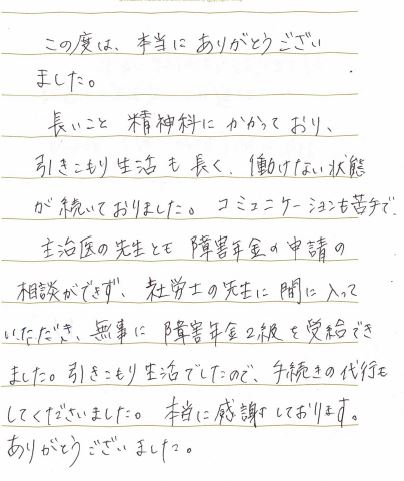 この度は、本当にありがとうござい
ました。
長いこと精神科にかかっており、
引きこもり生活も長く、働けない状態
が続いておりました。コミュニケーションも苦手で、
主治医の先生とも障害年金の申請の
相談ができず、社労士の先生に間に入って
いただき、無事に障害年金2級を受給でき
ました。引きこもり生活でしたので、手続きの代行も
してくださいました。本当に感謝しております。
ありがとうございました。